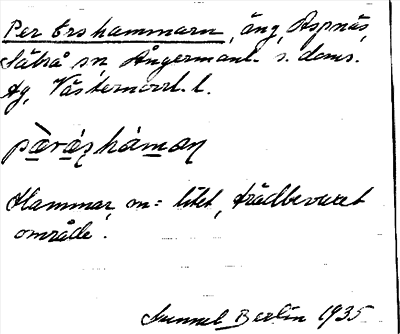 Per Ers hammarn, äng, Aspnäs,
Sätrå sn Ångermanl. s. doms.
Ag, Västernorrl. l.
pàràs̩hámaɳ
Hammar, m = litet, trädbevuxet
område.
Gunnel Berlin 1935